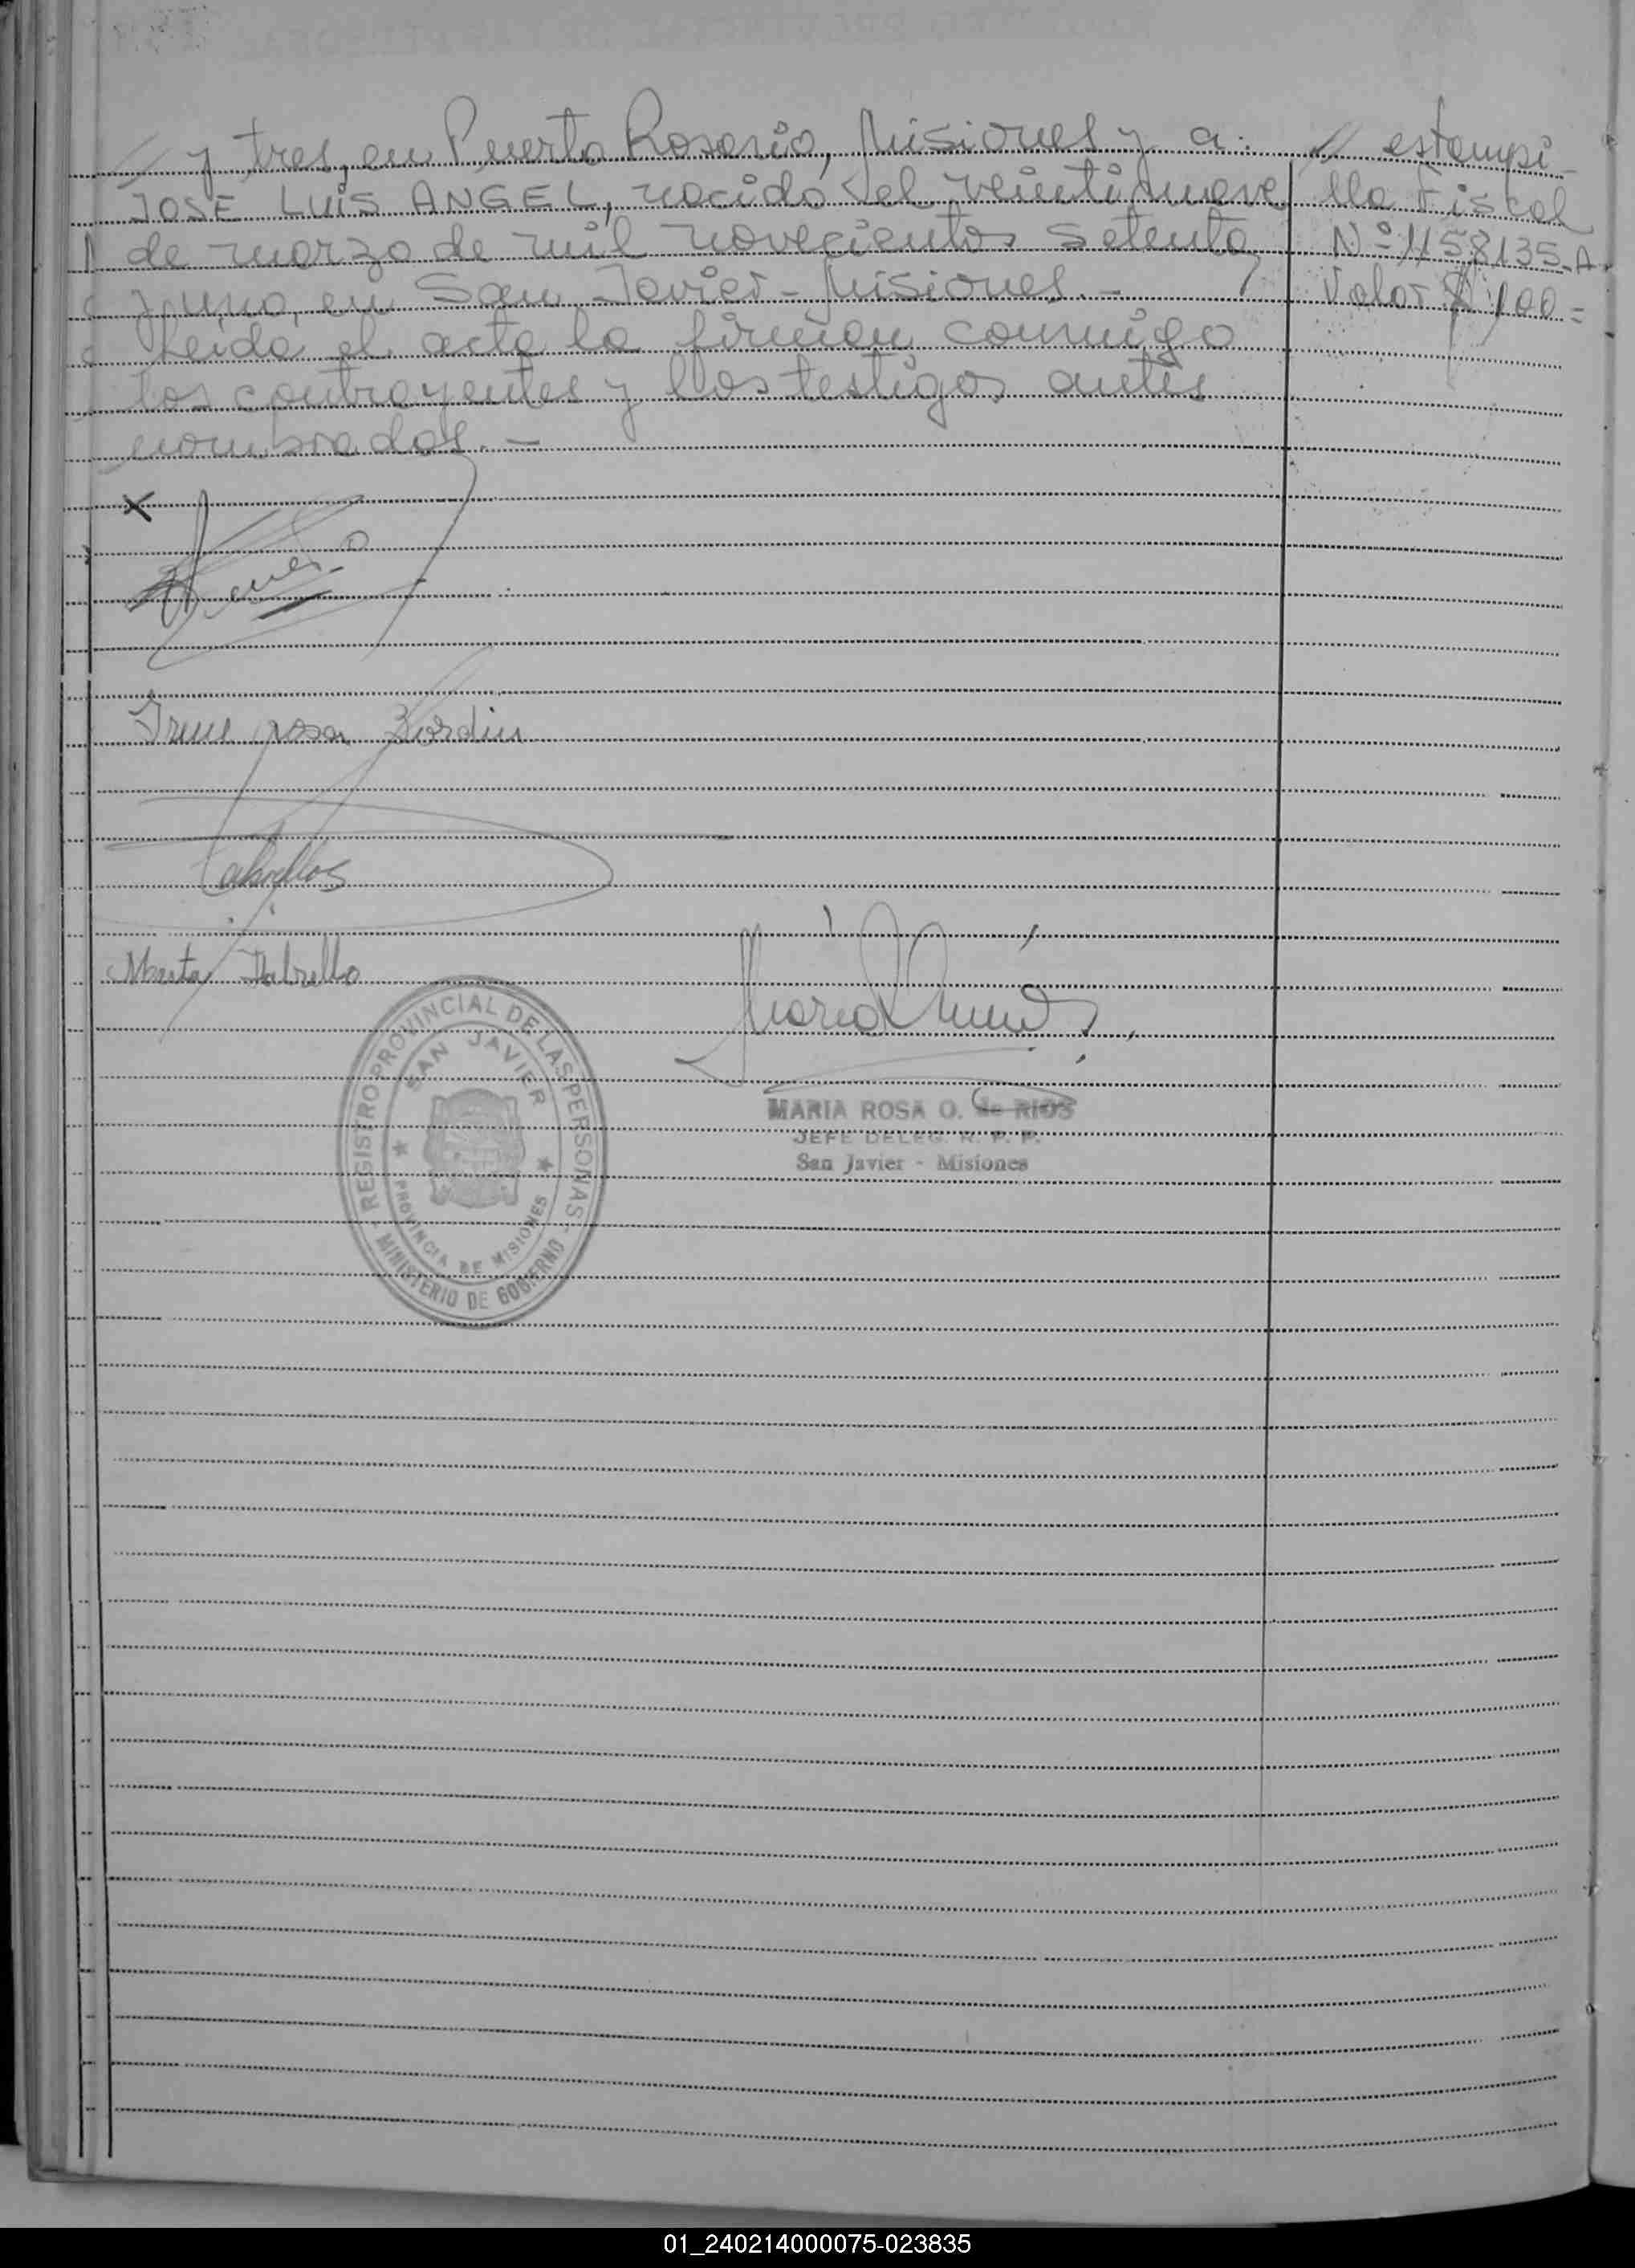 // y tres, en Puerto Rosario, Misiones y a:
JOSE LUIS ANGEL, nacido el veintinueve
de marzo de mil novecientos setenta
y uno, en San Javier - Misiones. -
Leída el acta la firman conmigo
los contrayentes y los testigos antes
nombrados. -
// estampi-
lla Fiscal
Nº 1158135-A.
Valor $ 100=
X
Irene rosa
Marta
MARIA ROSA O. de RIOS
JEFE DELEG. R. P. P.
San Javier - Misiones
REGISTRO PROVINCIAL DE LAS PERSONAS -
SAN JAVIER
PROVINCIA DE MISIONES
MINISTERIO DE GOBIERNO -
01_240214000075-023835